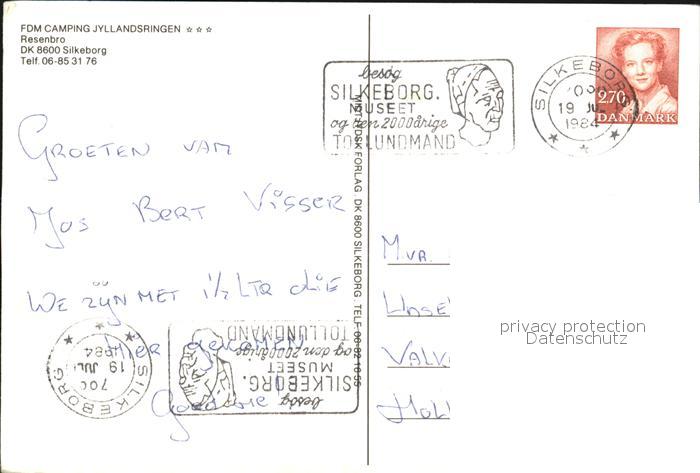 FDM CAMPING JYLLANDSRINGEN ☆☆☆
Resenbro
DK 8600 Silkeborg
Telf. 06-85 31 76
besøg
SILKEBORG.
MUSEET
og den 2000årige
TOLLUNDMAND
SILKEBORG
19 JUL
1984
2.70
DANMARK
FORLAG DK 8600 SILKEBORG . TELF. 06-82 16 55
GROETEN VAN
Jos BERT VISSER
WE ZIJN MET 1½ LTR OLIE
HIER GEKOMEN
Goed hé!
MVR.
VALV
HOL
privacy protection
Datenschutz
besøg
SILKEBORG.
MUSEET
og den 2000årige
TOLLUNDMAND
SILKEBORG
700
19 JUL
1984